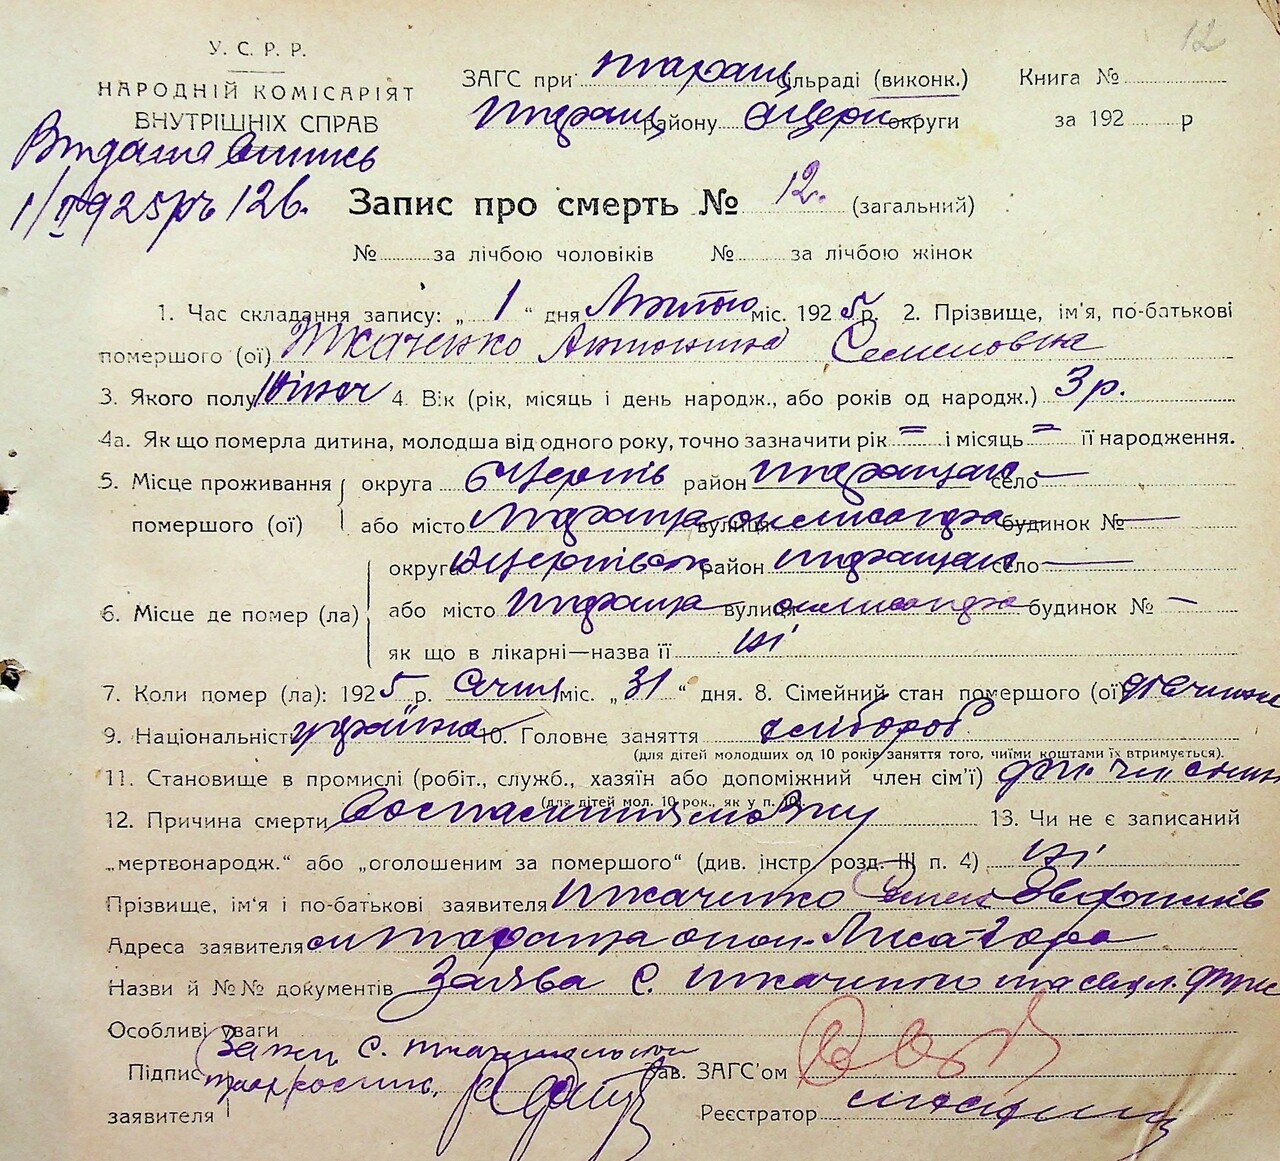 12
У. С. Р. Р.
НАРОДНІЙ КОМІСАРІЯТ
ВНУТРІШНІХ СПРАВ
ЗАГС при Таращ сільраді (виконк.) Книга №
Таращ району Бцерк округи за 192 р
Видана випись
1/II 1925 р № 126.
Запис про смерть № 12. (загальний)
№ за лічбою чоловіків № за лічбою жінок
1. Час складання запису: „ 1 “ дня Лютого міс. 1925 р. 2. Прізвище, ім'я, по-батькові
помершого (ої) Ткаченко Антонина Семеновна
3. Якого полу жіноч 4. Вік (рік, місяць і день народж., або років од народж.) 3 р.
4а. Як що померла дитина, молодша від одного року, точно зазначити рік = і місяць = її народження.
5. Місце проживання округа Бцерків район Таращан село —
помершого (ої) або місто Тараща вулиця будинок № —
округа Бцерківськ район Таращан село —
6. Місце де помер (ла) або місто Тараща вулиця будинок № —
як що в лікарні—назва її ні
7. Коли помер (ла): 1925 р. Січня міс. „ 31 “ дня. 8. Сімейний стан помершого (ої) дівчина
9. Національність україн 10. Головне заняття хлібороб
(для дітей молодших од 10 років заняття того, чиїми коштами їх втримується).
11. Становище в промислі (робіт., служб., хазяїн або допоміжний член сім'ї)
(для дітей мол. 10 рок., як у п. 10)
12. Причина смерти 13. Чи не є записаний
„мертвонародж.“ або „оголошеним за помершого“ (див. інстр. розд. III п. 4) ні
Прізвище, ім'я і по-батькові заявителя Ткаченко Семен
Адреса заявителя м Тараща окол. Лиса-Гора
Назви й №№ документів Заява С. Ткаченко та
Особливі уваги
Підпис
заявителя
Зав. ЗАГС'ом
Реєстратор